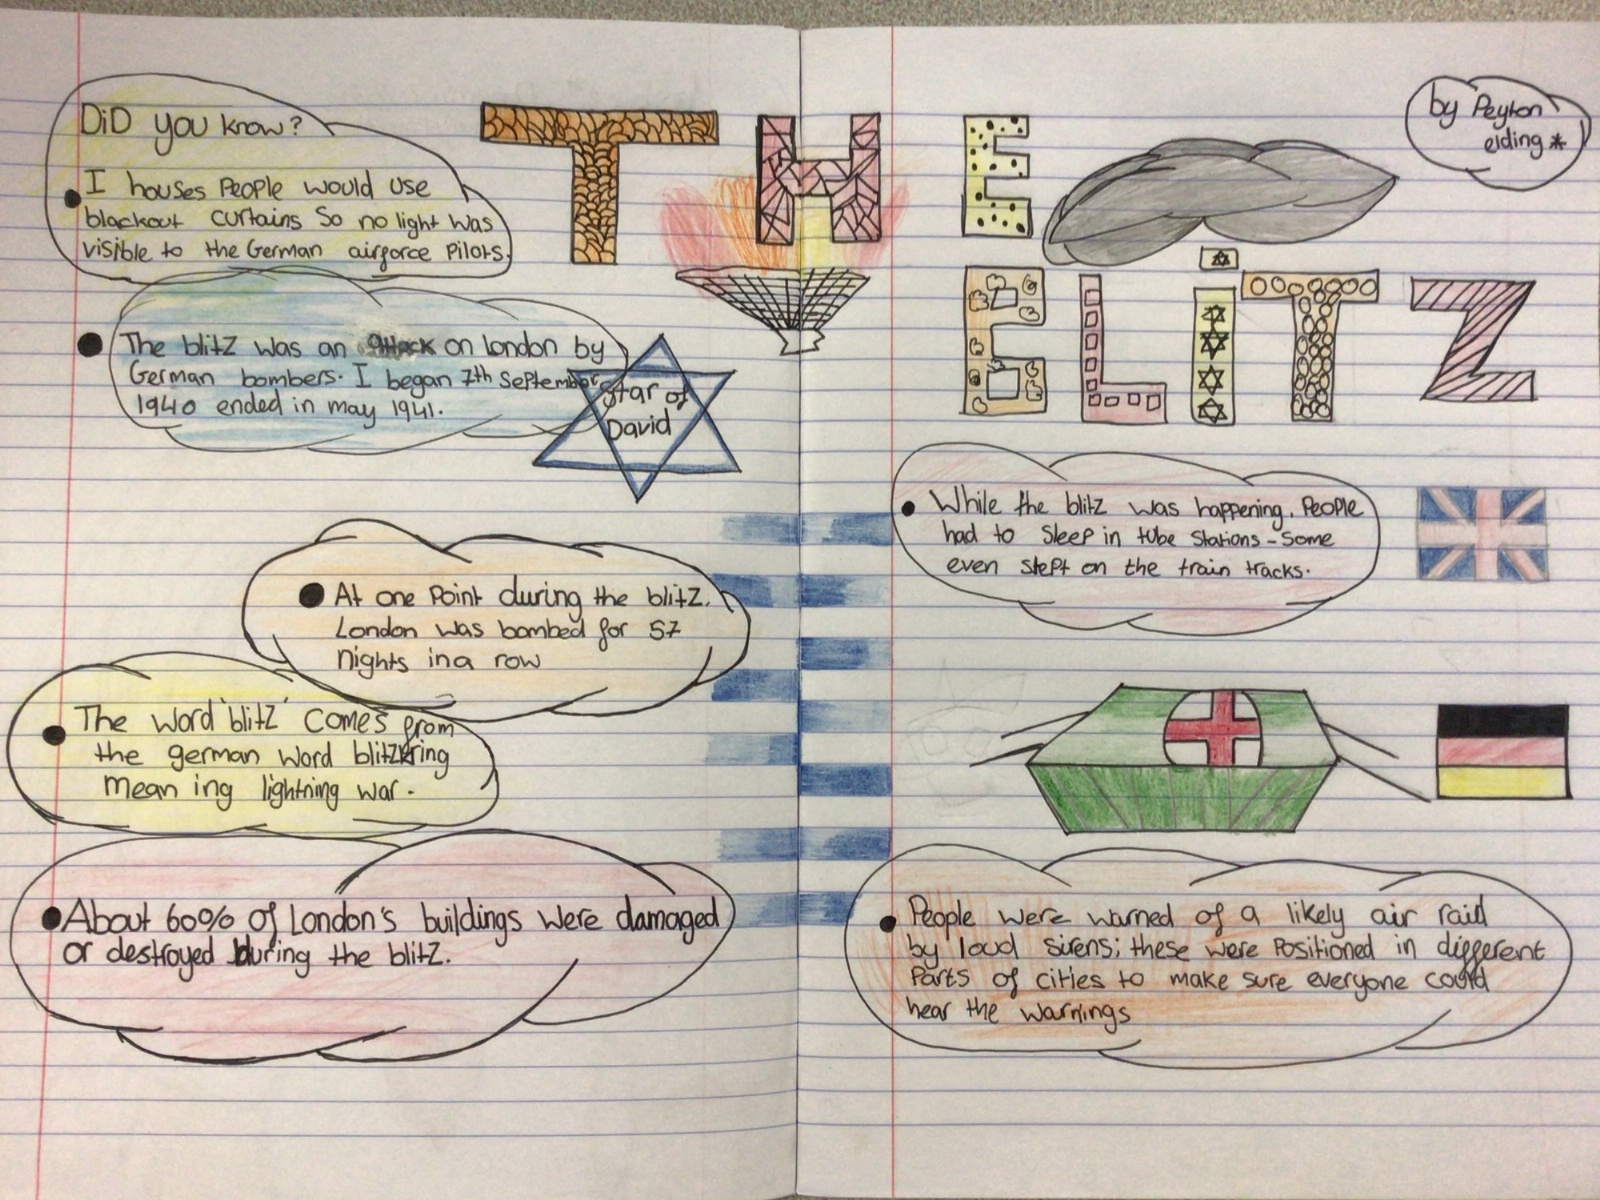 DiD you know?
I houses People would use
blackout curtains So no light was
visible to the German airforce Pilots.
THE
BLITZ
by Peyton
elding *
The blitz was an attack on London by
German bombers. I began 7th September
1940 ended in may 1941.
Star of
David
While the blitz was happening. People
had to Sleep in tube Stations - Some
even slept on the train tracks.
At one Point during the blitz.
London was bombed for 57
nights in a row
The word 'blitz' comes from
the german word blitzkring
mean ing lightning war.
About 60% of London's buildings were damaged
or destroyed during the blitz.
People were warned of a likely air raid
by loud sirens; these were Positioned in different
Parts of cities to make sure everyone could
hear the warnings